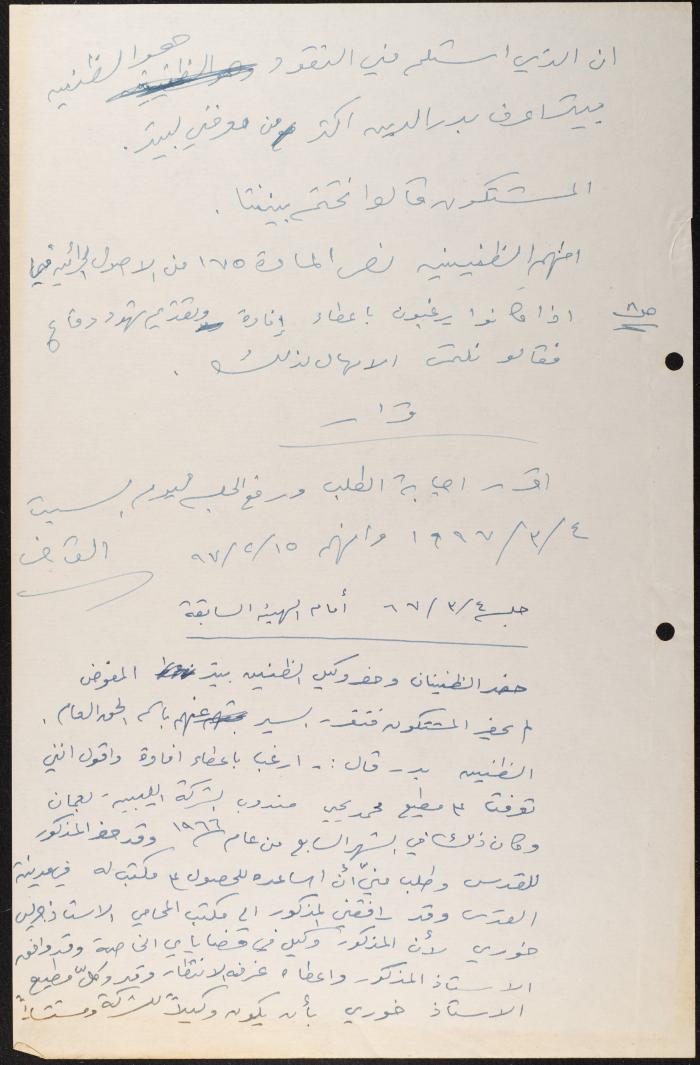 ان الذي استلم مني النقود هو الظنين
بيتر اعرف بدر الدين اكثر من معرفتي لبيتر .
المشتكون قالوا نختم بينتنا .
افهم الظنينين نص المادة ١٧٥ من الاصول الجزائية فيما
ص٨
اذا كانوا يرغبون باعطاء إفادة وتقديم شهود دفاع
فقالو نلتمس الامهال لذلك .
قرار
اقرر اجابة الطلب ورفع الجلسة ليوم السبت
٤/٣/١٩٦٧ وافهم ١٥/٢/٦٧ القاضي
جلسة ٤/٣/٦٧ أمام الهيئة السابقة
حضر الظنينان وحضر وكيل الظنين بيتر المفوض
لم يحضر المشتكون فتقرر السير باسم الحق العام .
الظنين بدر قال :- ارغب باعطاء افادة واقول انني
تعرفت على مطيع محمد يحيى مندوب الشركة الليبية - بعمان
وكان ذلك في الشهر السابع من عام ١٩٦٦ وقد حضر المذكور
للقدس وطلب مني أن اساعده للحصول على مكتب له في مدينة
القدس وقد رافقني المذكور الى مكتب المحامي الاستاذ
خوري لأن المذكور وكيل في قضاياي الخاصة وقد وافق
الاستاذ المذكور واعطاه غرفة الانتظار وقد وكّل مطيع
الاستاذ خوري بأن يكون وكيلاً للشركة ومستشاراً